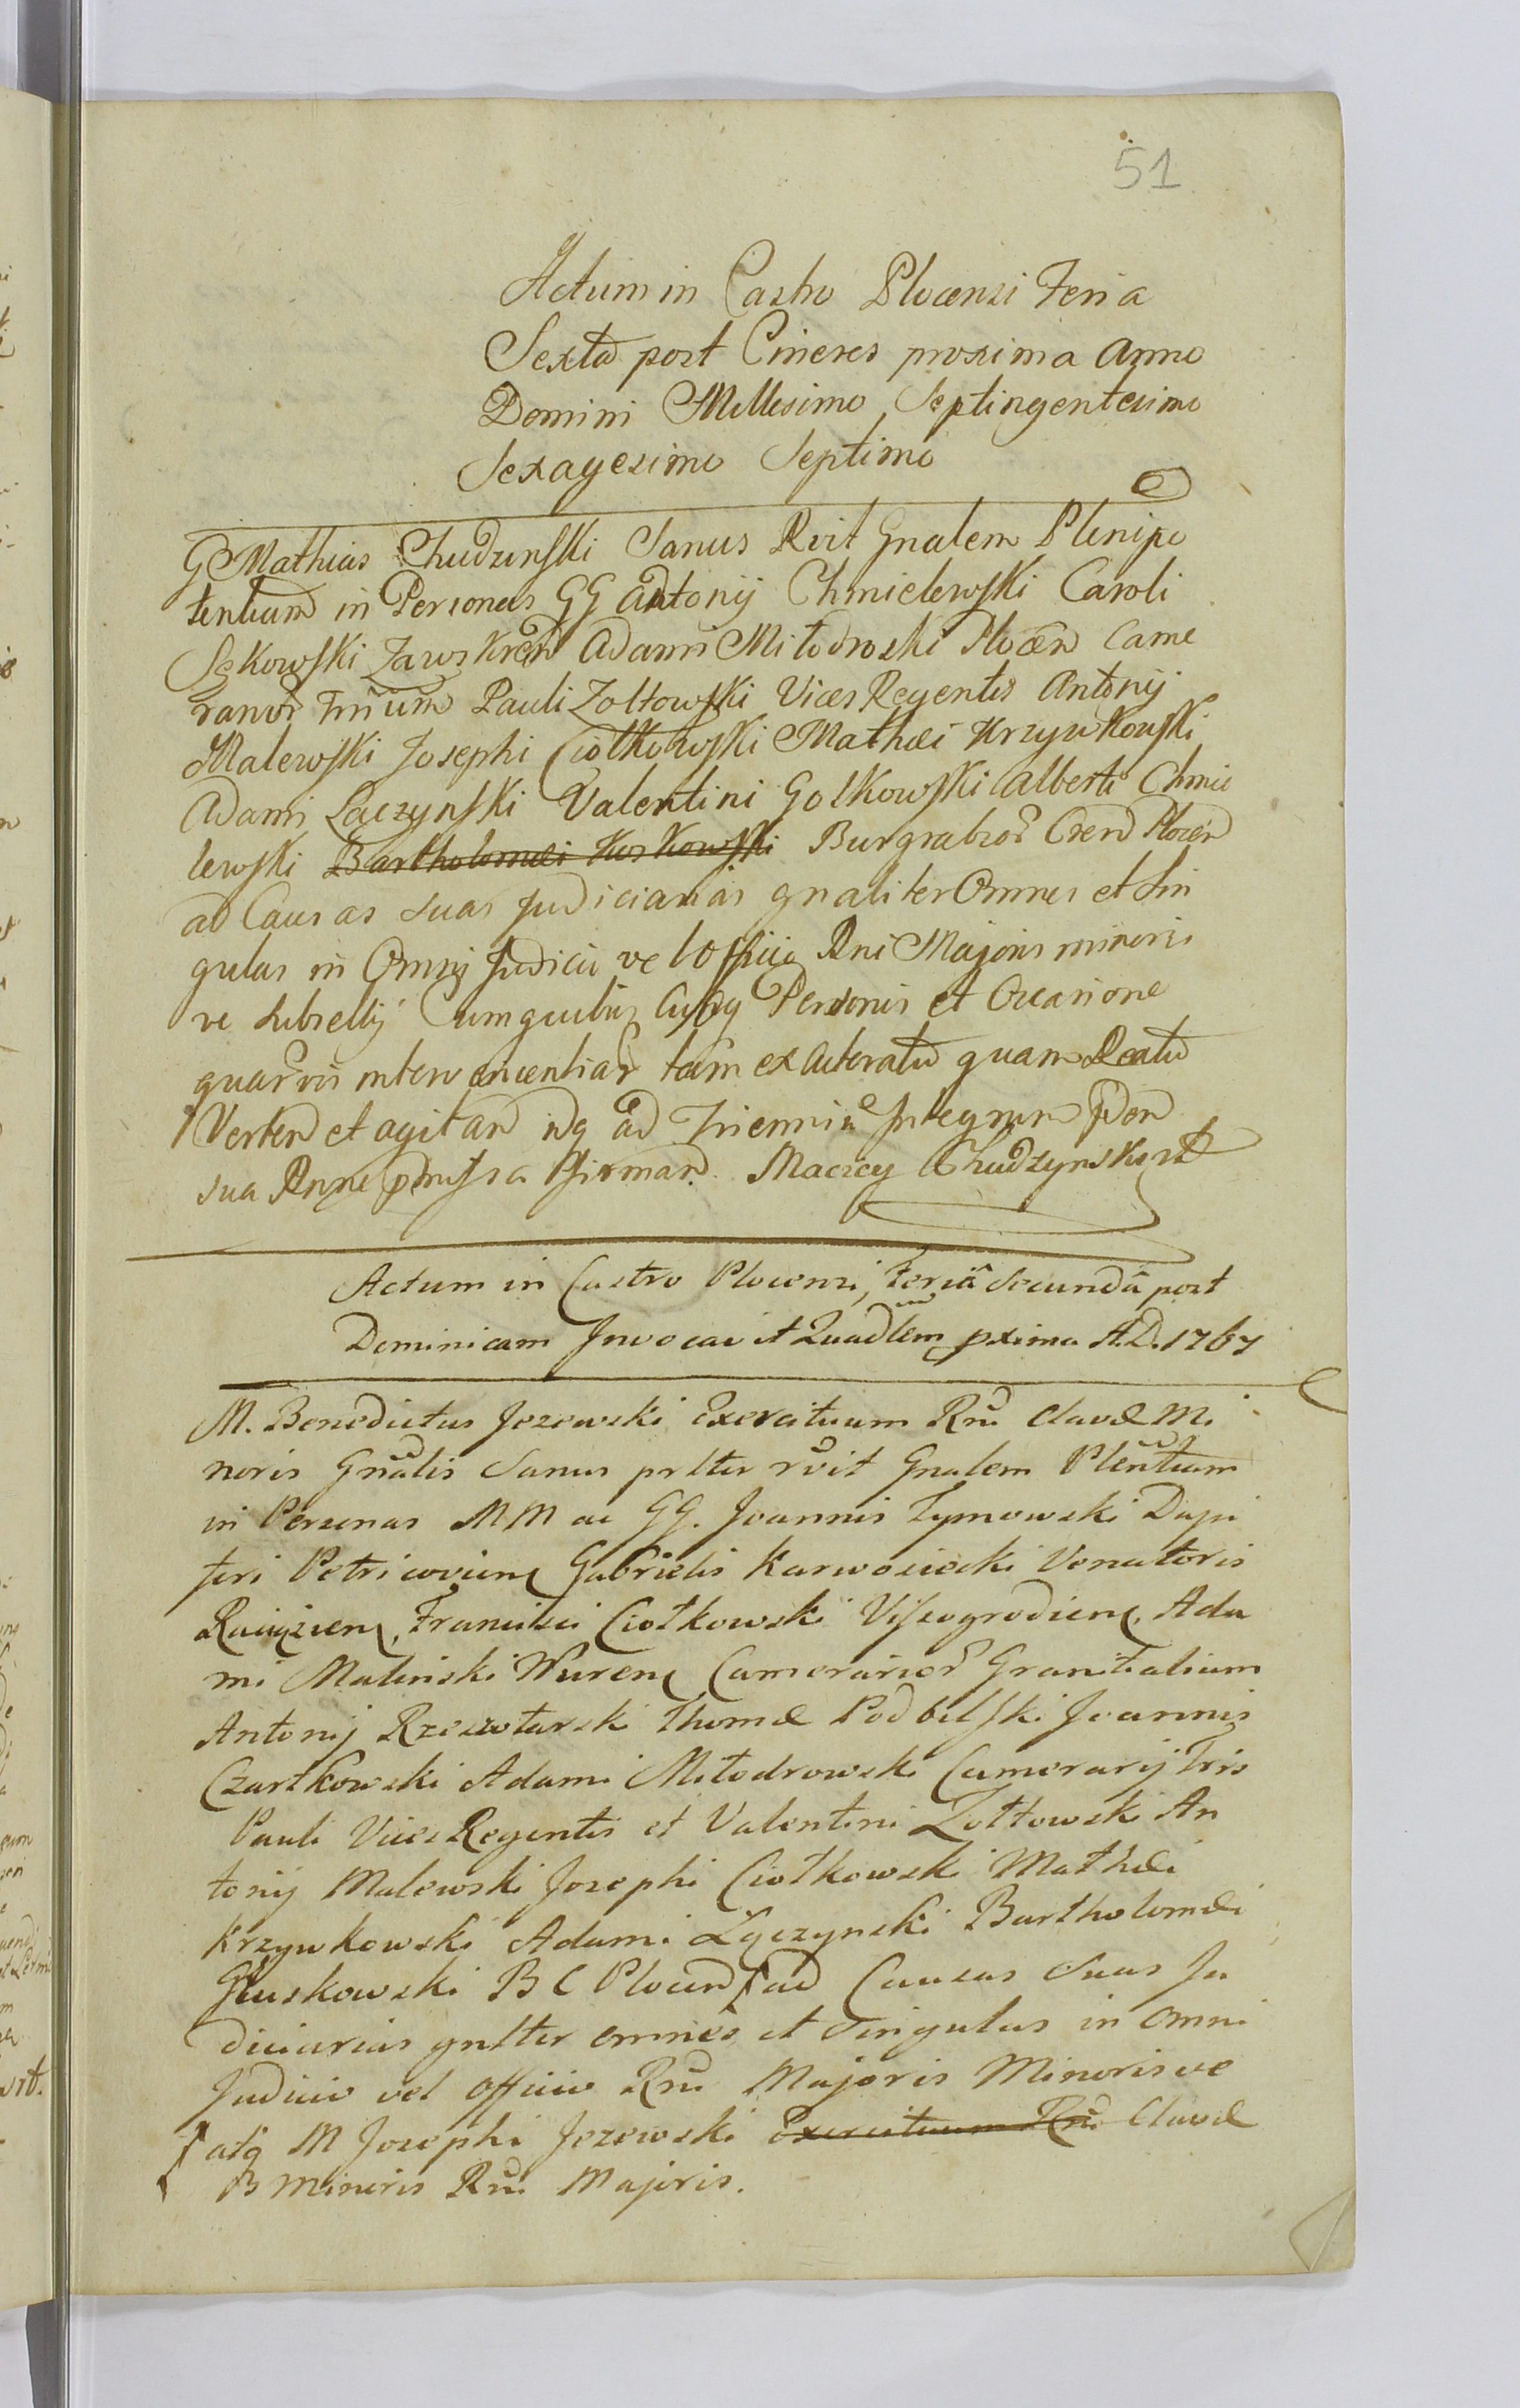 51
Actum in Castro Plocensi Feria
Sexta post Cineres proxima Anno
Domini Millesimo Septingentesimo
Sexagesimo Septimo
G Mathias Chudzinski Sanus Rvit Gnalem Plenipo
tentiam in Personas GG Antonij Chmielewski Caroli
Sękowski Zawskren Adami Miłodroski Plocen Came
ranor Trium Pauli Zołtowski Vices Regentis Antonij
Malewski Josephi Ciołkowski Mathæi Krzywkowski
Adami Łączynski Valentini Golkowski Alberti Chmie
lewski Bartholomæi Kuskowski Burgrabior Cren Plocen
ad Causas suas Judiciarias gnaliter Omnes et sin
gulas in Omni Judicii vel Officio Rni Majoris minoris
ve subsellij Cumquibus Cusvq Personis et Occasione
quarvis intervenientiar tam ex Actoratu quam Reatu
Verten et agitan idq ad Trienniu Integrum
sua Rnne Maciey Chudzynski
Actum in Castro Plocensi, Feriâ Secundâ post
Dominicam Invocavit Quadlem pxima A.D. 1767
M. Benedictus Jezewski Exercituum Rni Clavæ Mi
noris Gnalis Sanus prltter rvit Gnalem Plentiam
in Personas MM ac GG. Joannis Tymowski Dapi
feri Petricoviens Gabrielis Karwosiecki Venatoris
Raciąziens, Francisci Ciołkowski Viszogrodiens, Ada
mi Malinski Wurens Camerarior Granitialium
Antonij Rzeszotarski Thomæ Podbilski Joannis
Czartkowski Adami Miłodrowski Camerarij Tris
Pauli Vices Regentis et Valentini Żołtowski An
tonij Malewski Josephi Ciołkowski Mathæi
Krzywkowski Adami Łączynski Bartholomæi
Gluskowski B C Plocen ad Causas Suas Ju
diciarias gnlter omnes et Singulas in Omni
Judicio vel Officio Rni Majoris Minorisve
atq M Josephi Jezewski Exercituum Rni Clavæ
B Minoris Rni Majoris.